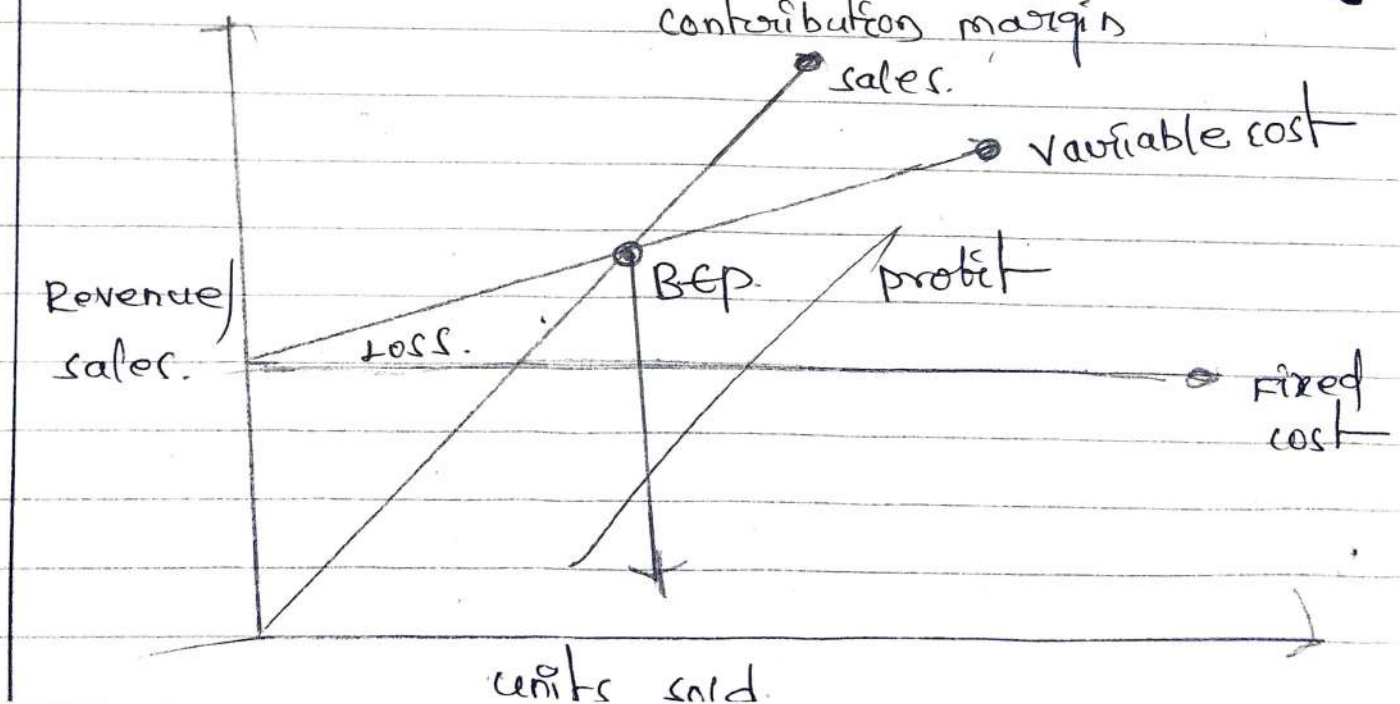 contribution margin
sales.
variable cost
BEP.
profit
Revenue/
sales.
Loss.
Fixed
cost
units sold.